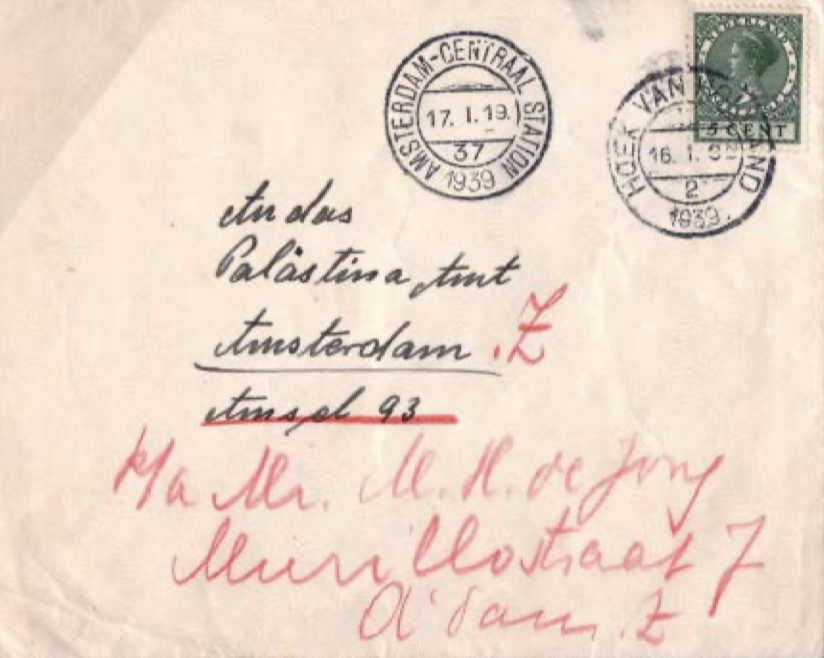 AMSTERDAM-CENTRAAL STATION
17. I. 19.
37
1939
NEDERLAND
5 CENT
HOEK VAN HOLLAND
16. I.
2
1939.
An das
Palästina Amt
Amsterdam .Z
Amsel 93
p/a Mr. M. H. de Jong
Murillostraat 7
A'dam. Z